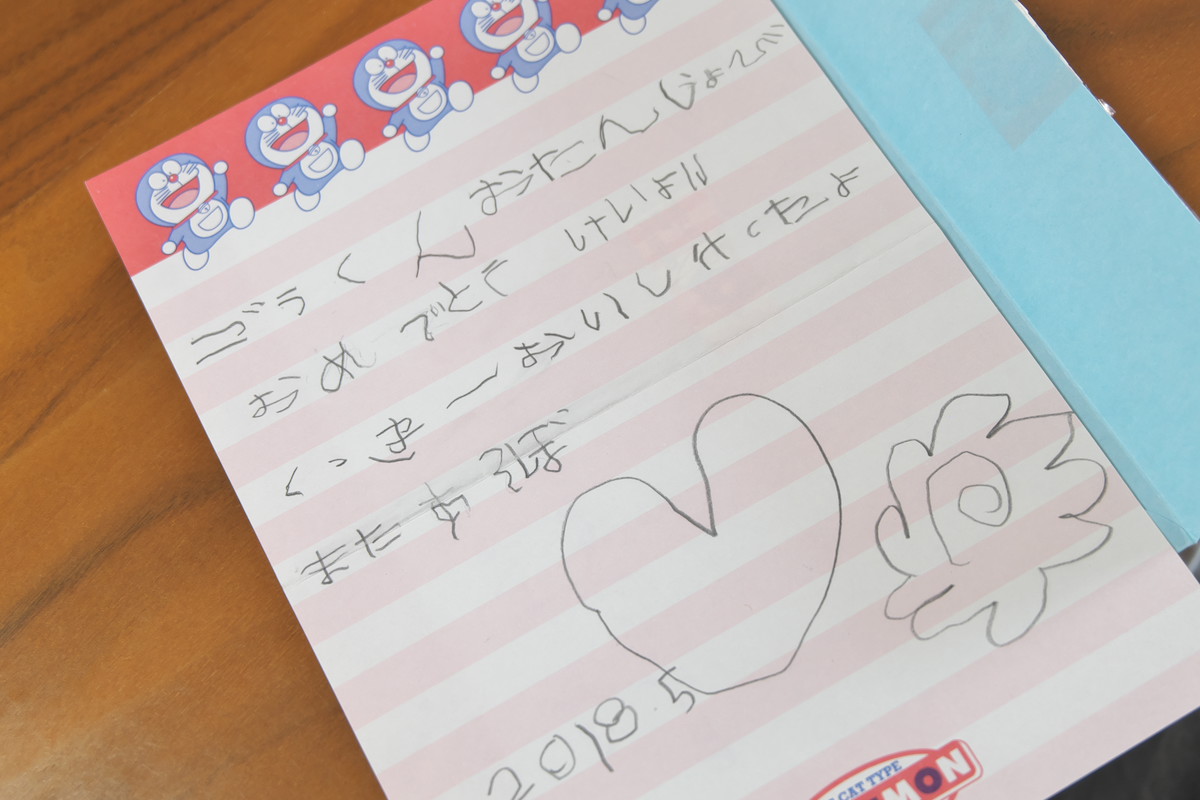 ごうくん おたんじょ
おめでとう
くっきーおいしかったよ
またあそぼ
2018.5
CAT TYPE
MON